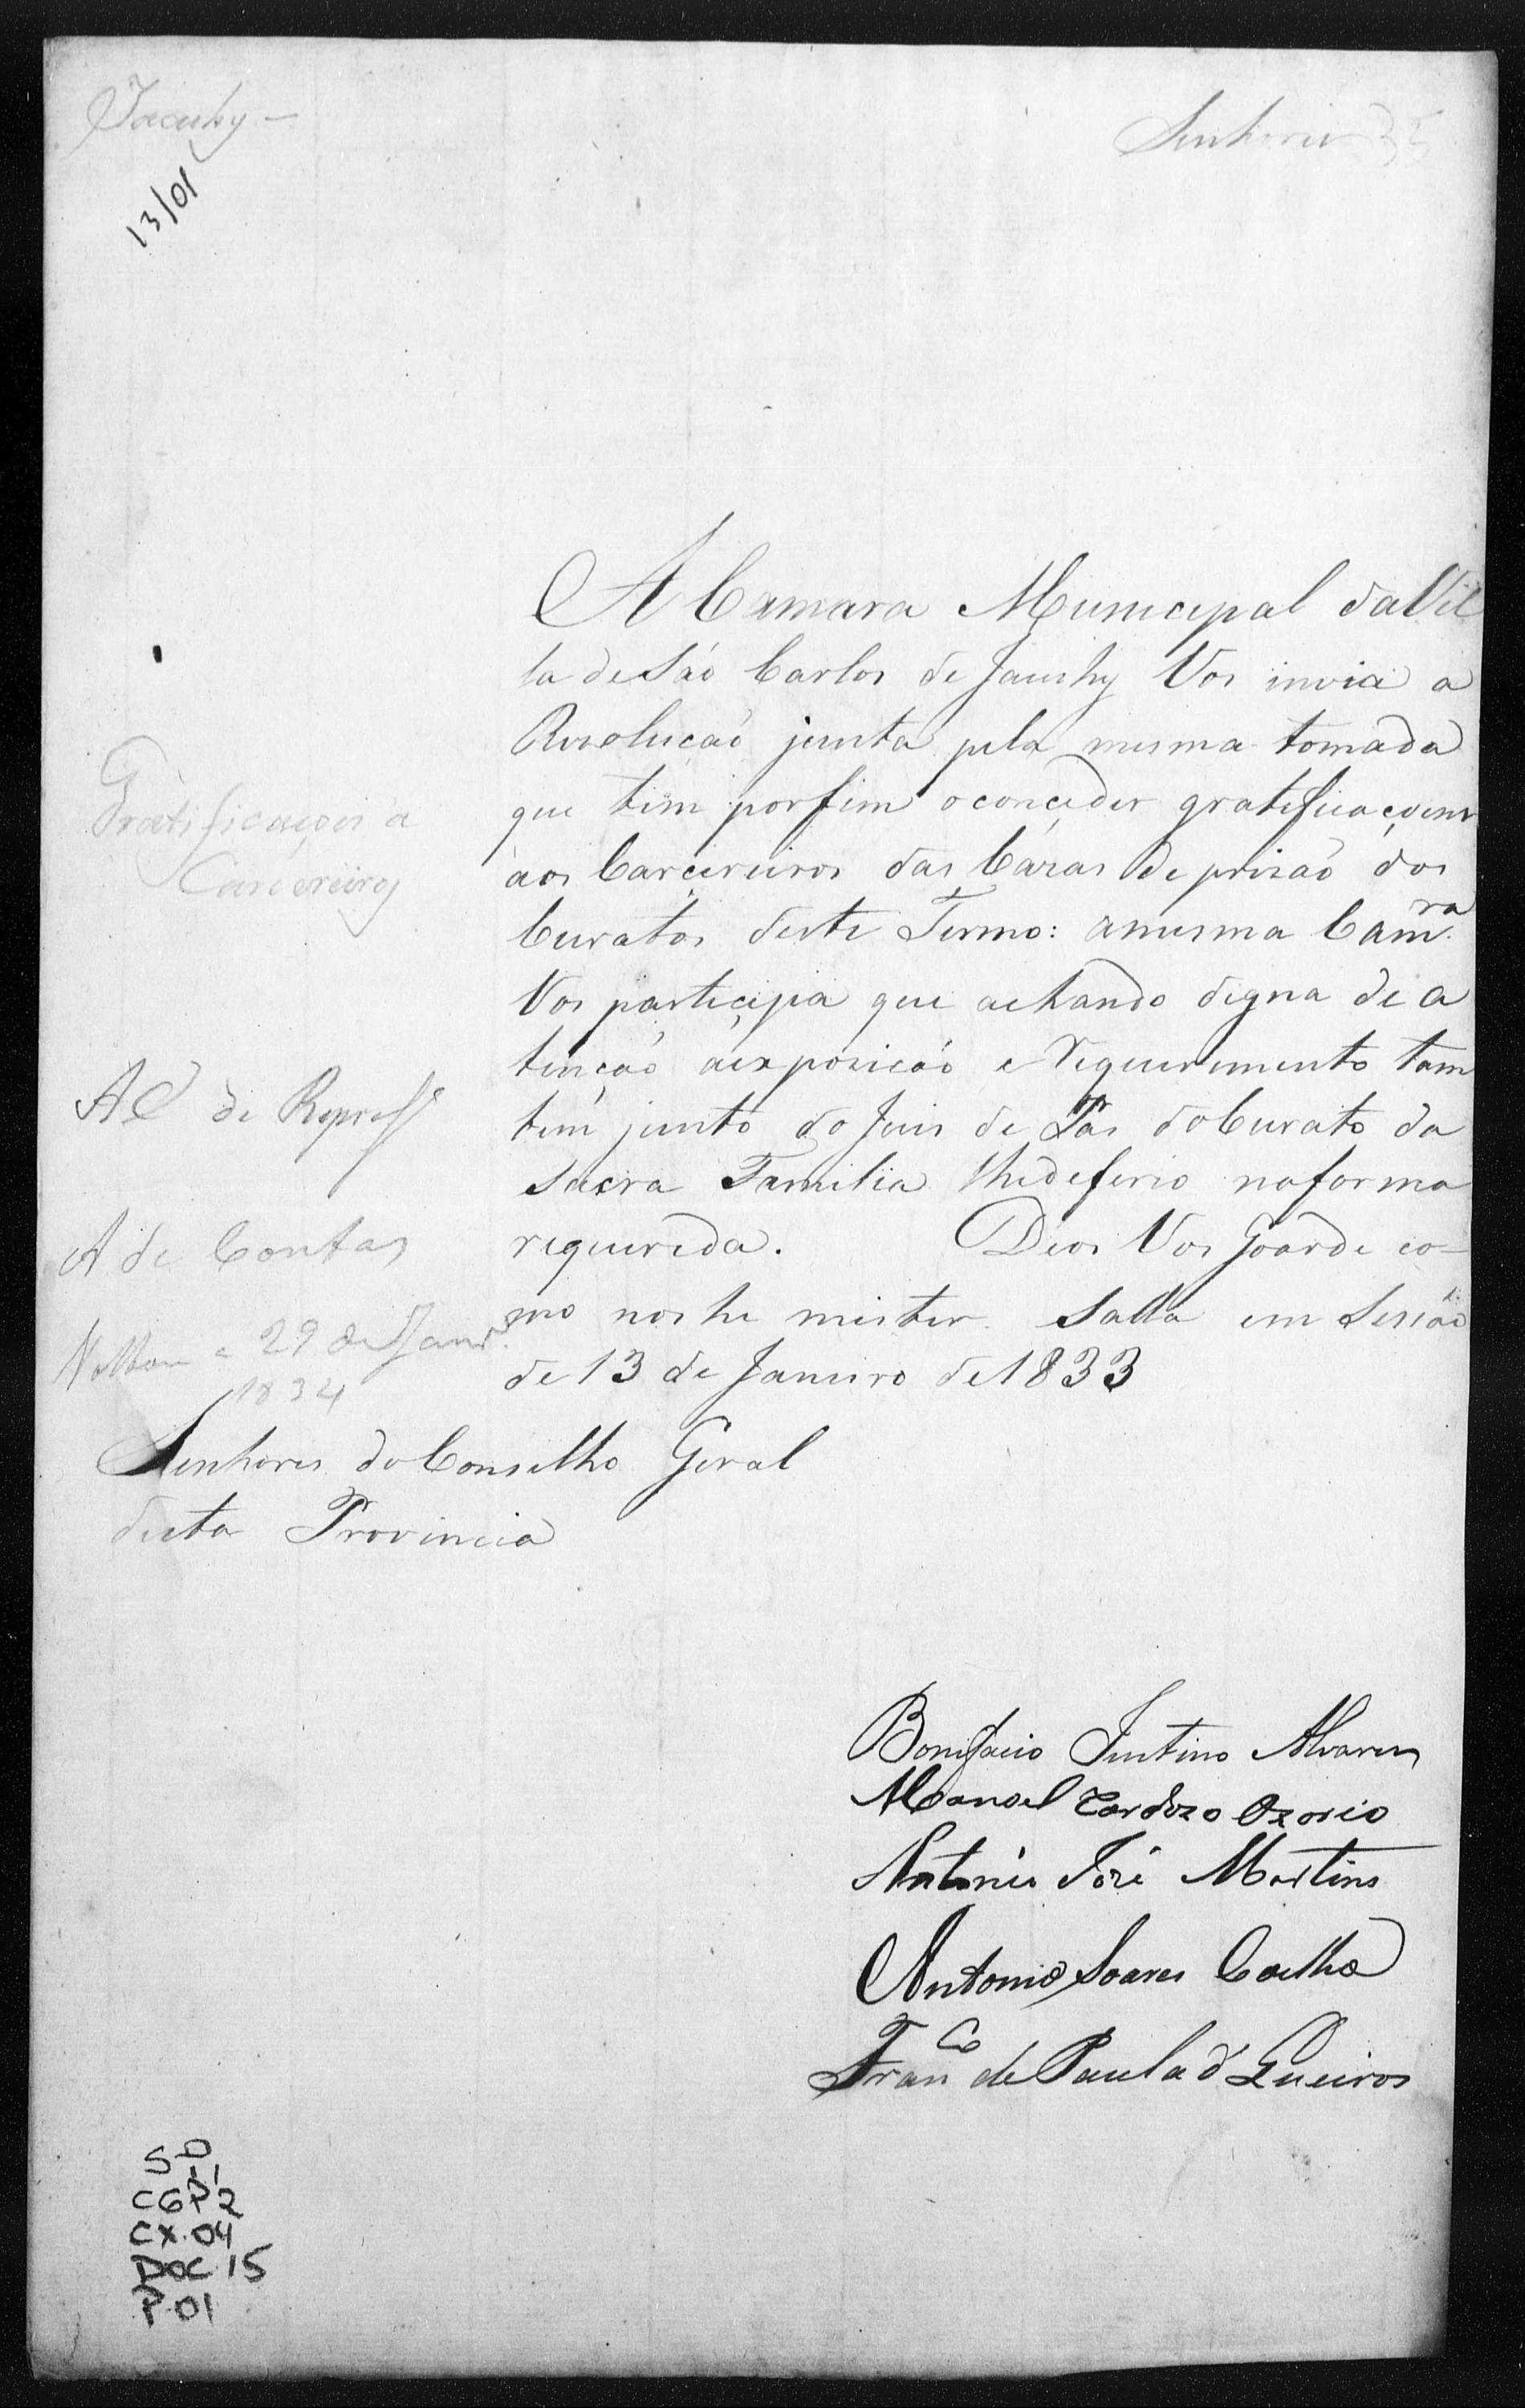 Jacuhy —
Senhores 35
13/01
A Camara Municipal da Vil
la de Saõ Carlos de Jacuhy Vos invia a
Resoluçaõ junta pela mesma tomada
que tem por fim o conçeder gratificaçoens
aos Carcereiros das Cazas de prizaõ dos
Curatos deste Termo: a mesma Camra
Vos participa que achando digna de a
tençaõ a expoziçaõ e requerimento tam
bem junto do Juis de Pás do Curato da
Sacra Familia lhe deferio na forma
requerida. Deos Vos Goarde co-
mo nos he mister. Salla em Sessaõ
de 13 de Janeiro de 1833
Gratificações a
Carcereiros
A C de Represes
A de Contas
29 de Janro
1834
Senhores do Conselho Geral
desta Provincia
Bonifacio Justino Alvares
Manoel Cardozo Ozorio
Antonio José Martins
Antonio Soares Coelho
Franco de Paula d' Queiros
SP
CGP2
CX.04
DOC 15
P.01